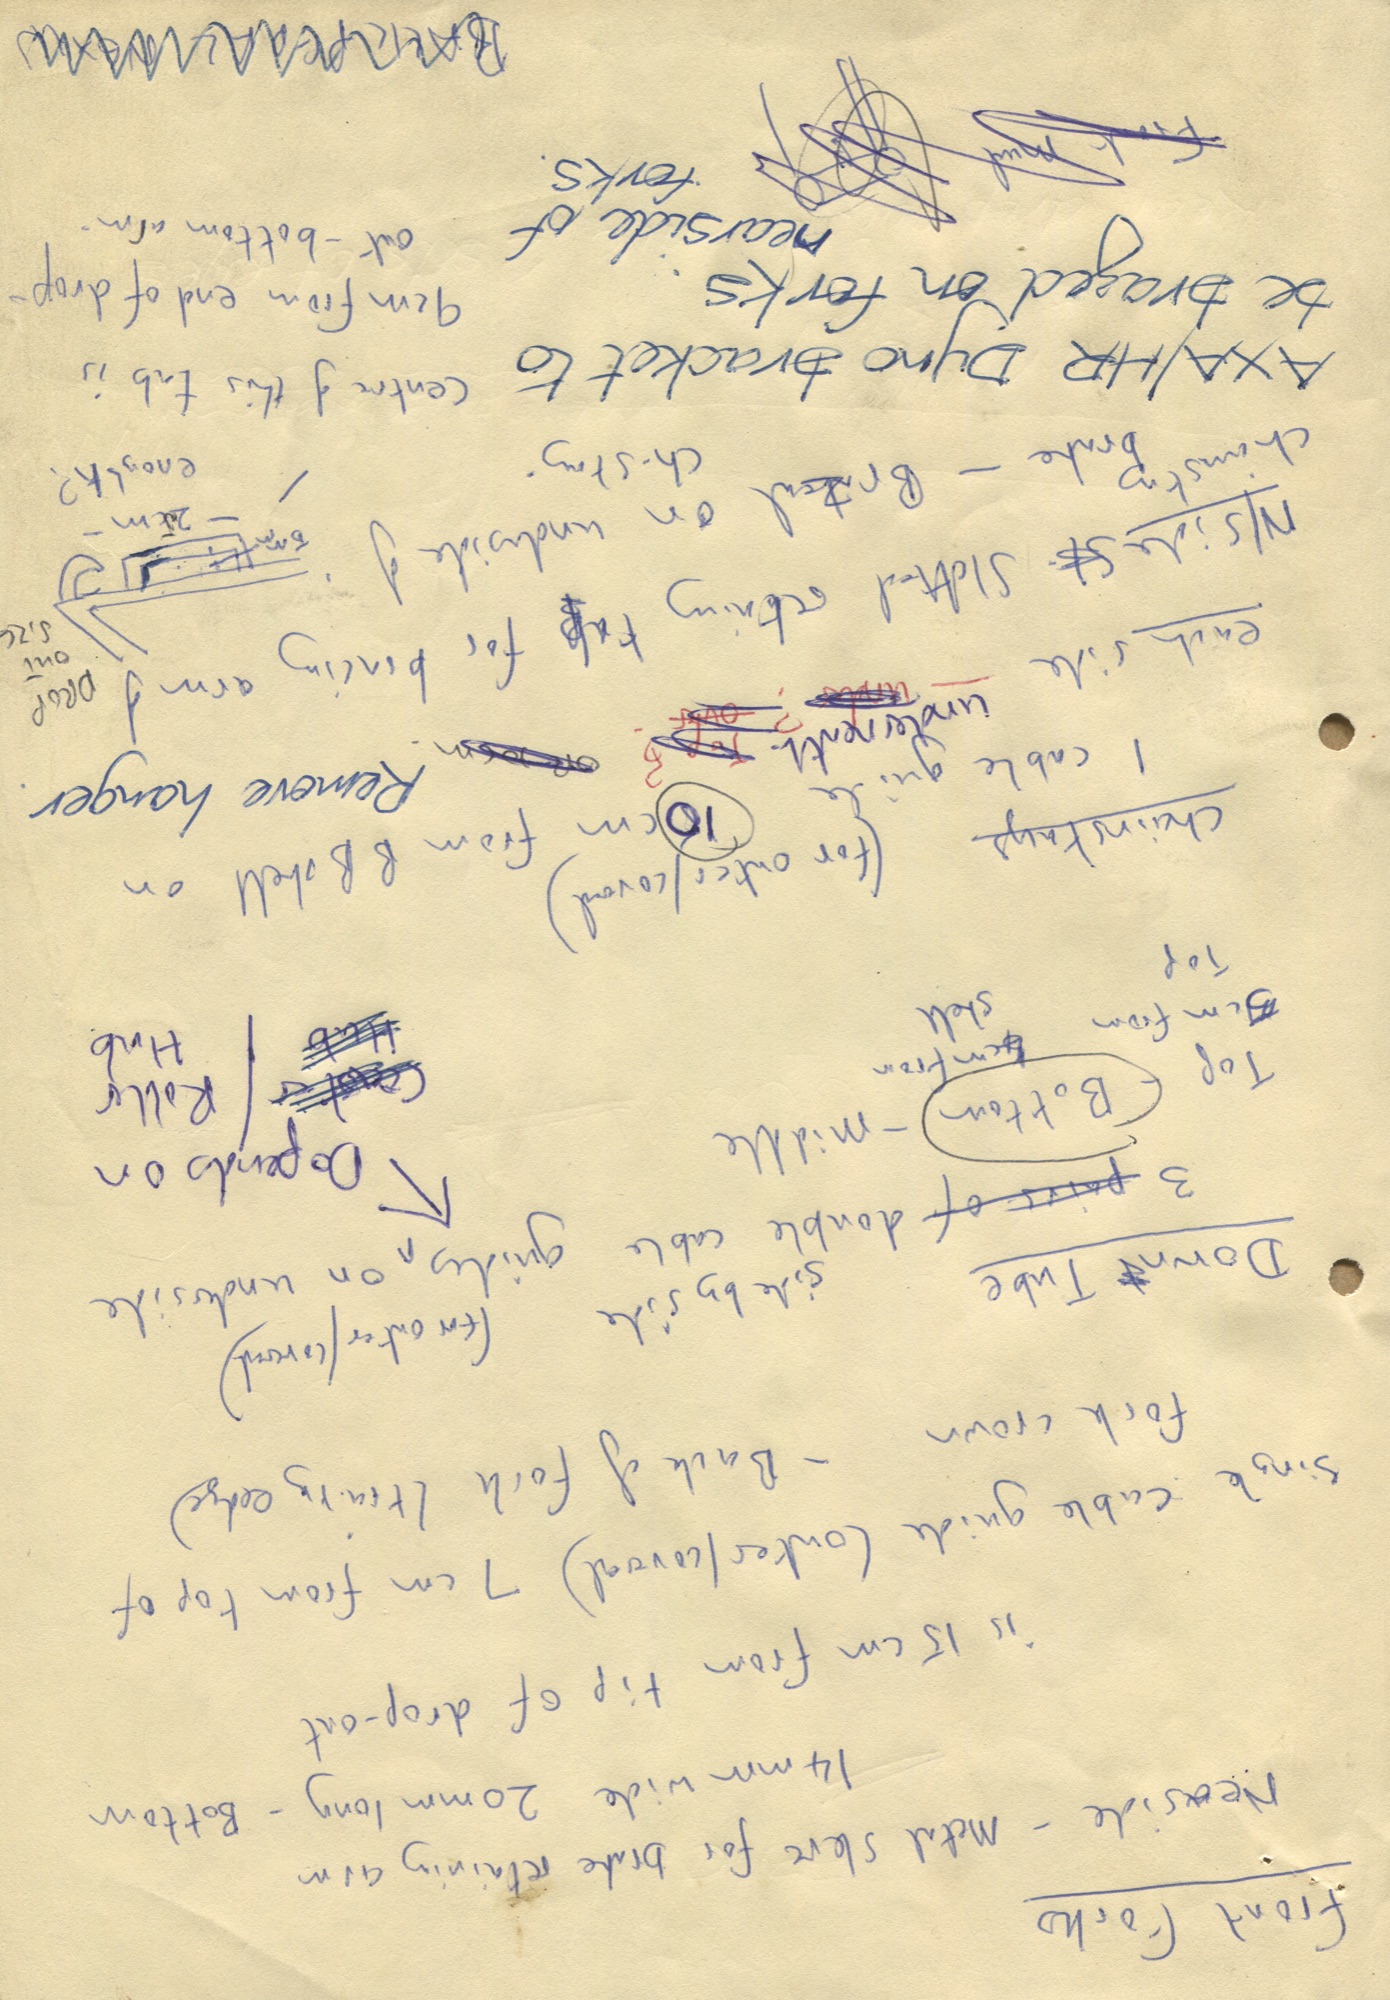 Front Forks
Nearside - Metal sleve for brake retaining arm
14mm wide 20mm long - Bottom
is 15 cm from tip of drop-out
Single cable guide (outer/covered) 7 cm from top of
fork crown - Back of fork (trailing edge)
Down Tube
side by side (for outer/covered)
3 pairs of double cable guides, on underside
Depends on
Top - Bottom - middle
Roller
Hub
5cm from
Top
cm from
shell
Chainstays (for outer/covered)
1 cable guide 10 cm from BB shell on
underneath.
Top?
over?
each side
Remove hanger.
DROP
OUT
SIZE
N/Side Slotted retaining tab for bracing arm of
chainstay brake - Brazed on underside of
ch-stay.
5mm
- 2cm -
enough?
AXA/HR Dyno bracket to
be brazed on forks.
nearside of
forks.
centre of this tab is
9cm from end of drop-
out - bottom arm.
Front mud